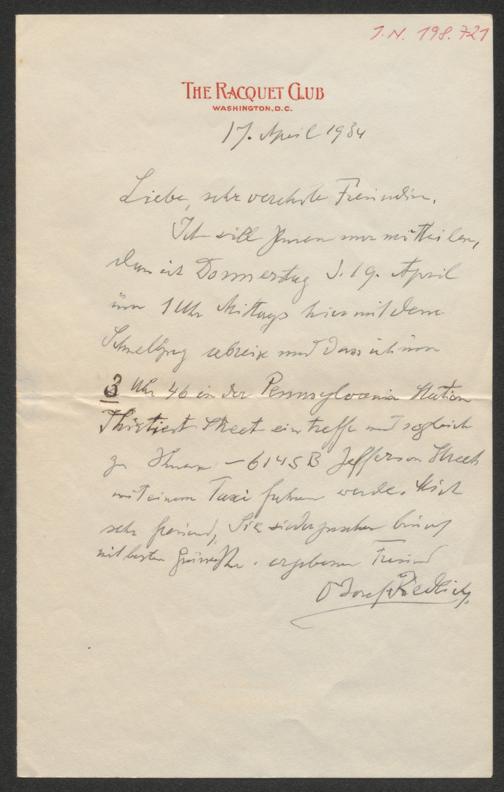 I.N. 198.721
THE RACQUET CLUB
WASHINGTON, D.C.
17. April 1934
Liebe, sehr verehrte Freundin.
Ich will Ihnen nur mitteilen,
dass ich Donnerstag d. 19. April
um 1 Uhr Mittags hier mit dem
Schnellzug abreise und dass ich um
3 Uhr 46 in der Pennsylvania Station
Thirtiest Street eintreffe und sogleich
zu Ihnen – 6145 B Jefferson Street
mit einem Taxi fahren werde. Mich
sehr freuend, Sie wiederzusehen bin ich
mit besten Grüssen Ihr ergebener Freund
Josef Redlich